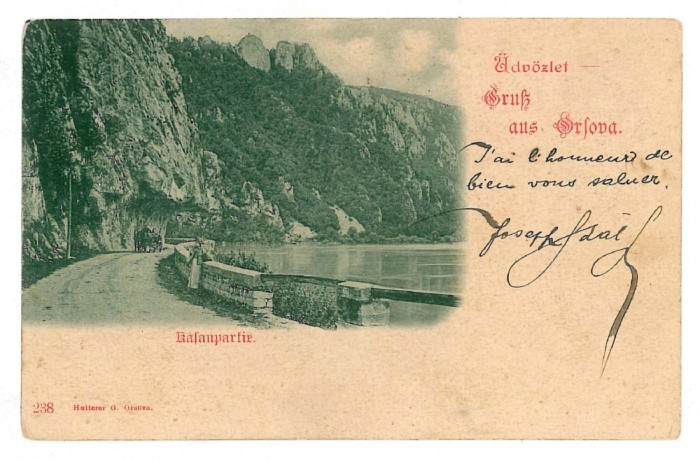 Üdvözlet —
Gruß
aus Orsova.
J'ai l'honneur de
bien vous saluer.
Joseph
Kasanpartie.
238 Hutterer G. Orsova.